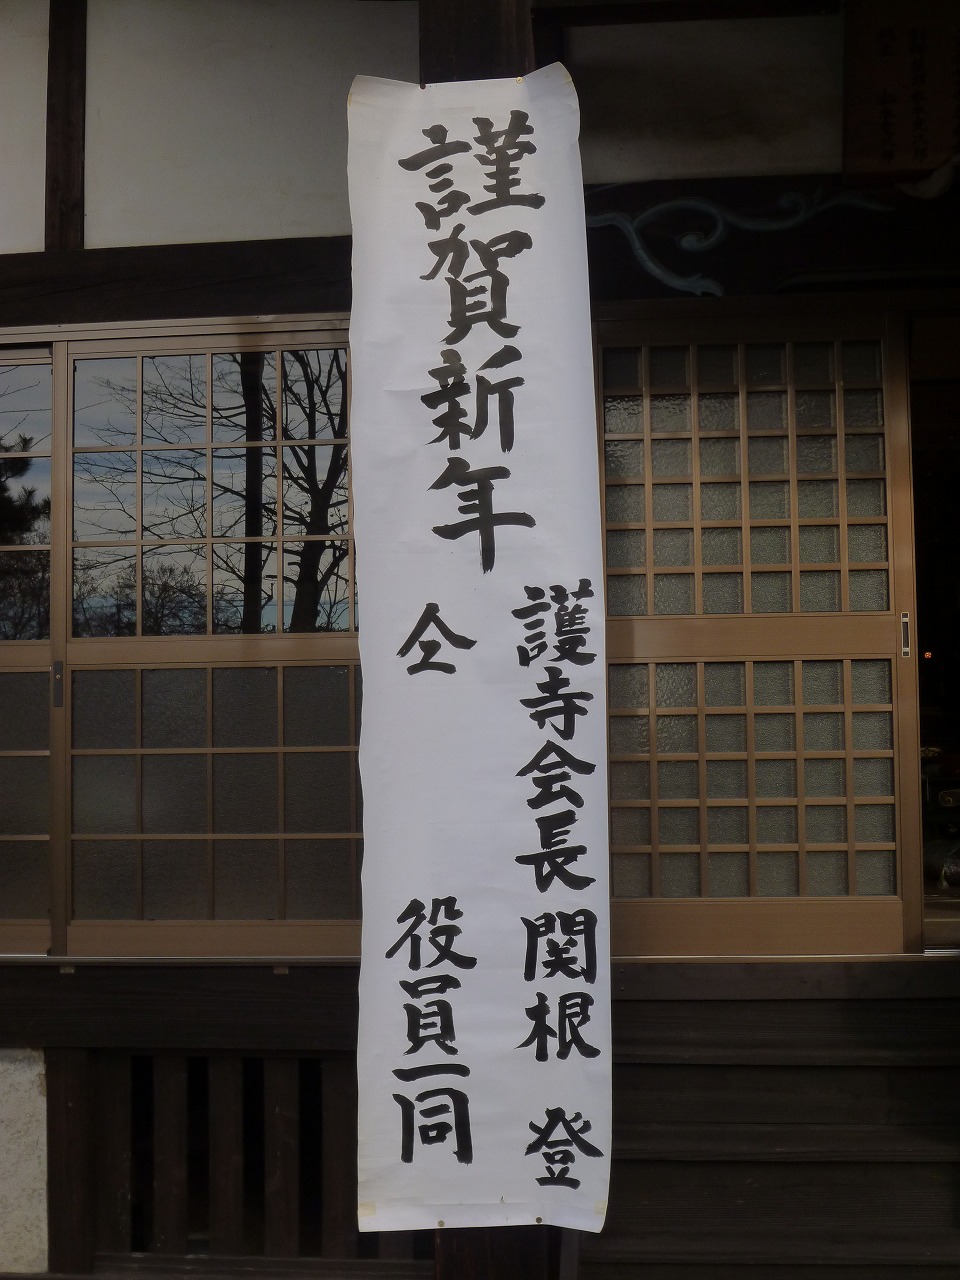 謹賀新年
護寺会長 関根 登
仝 役員一同